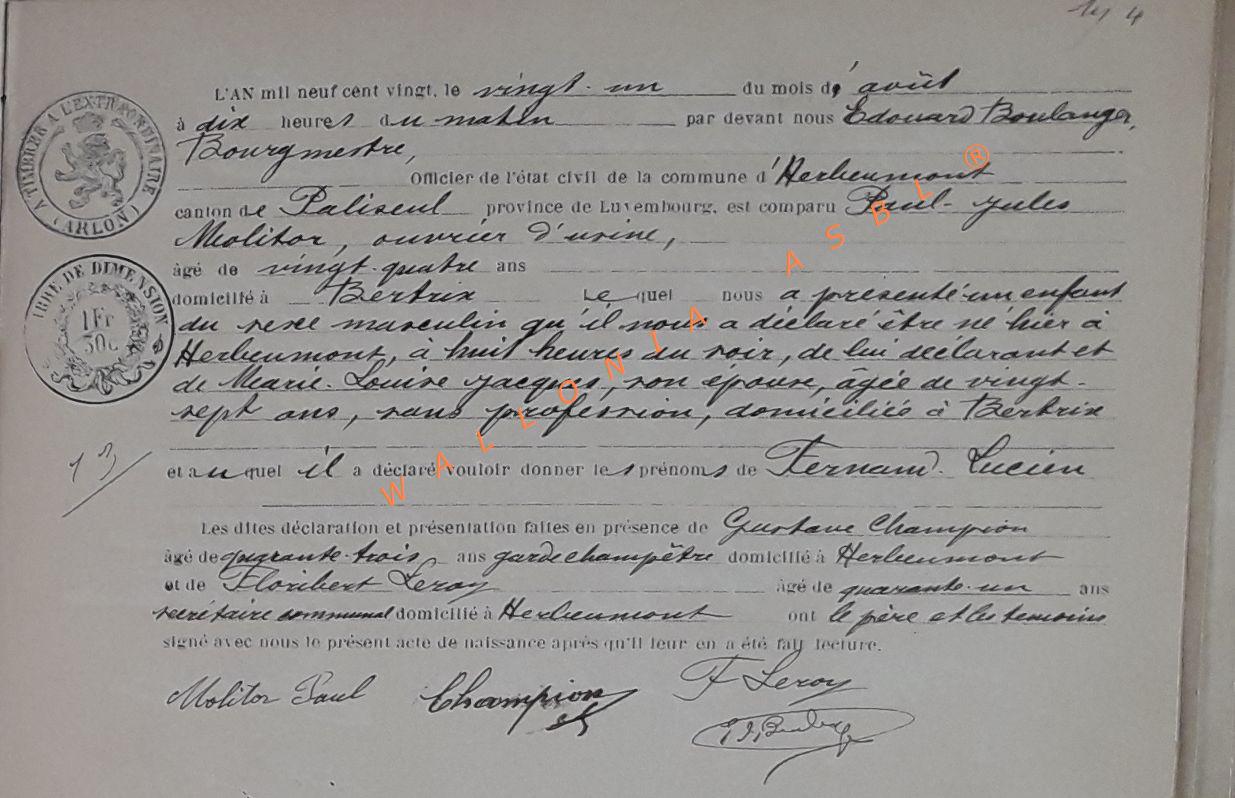 14 4
L'AN mil neuf cent vingt, le vingt-un du mois d'août
à dix heures du matin par devant nous Edouard Boulanger,
Bourgmestre,
Officier de l'état civil de la commune d'Herbeumont
canton de Paliseul province de Luxembourg, est comparu Paul-Jules
Molitor, ouvrier d'usine,
âgé de vingt-quatre ans
domicilié à Bertrix Lequel nous a présenté un enfant
du sexe masculin qu'il nous a déclaré être né hier à
Herbeumont, à huit heures du soir, de lui déclarant et
de Marie-Louise Jacques, son épouse, âgée de vingt-
sept ans, sans profession, domiciliée à Bertrix
et auquel il a déclaré vouloir donner les prénoms de Fernand-Lucien
Les dites déclaration et présentation faites en présence de Gustave Champion
âgé de quarante-trois ans garde champêtre domicilié à Herbeumont
et de Floribert Leroy âgé de quarante-un ans
secrétaire communal domicilié à Herbeumont ont le père et les témoins
signé avec nous le présent acte de naissance après qu'il leur en a été fait lecture.
Molitor Paul Champion F Leroy
A TIMBRER A L'EXTRAORDINAIRE
(ARLON)
TIMBRE DE DIMENSION
1 Fr
30c
13
WALLONIA ASBL ®